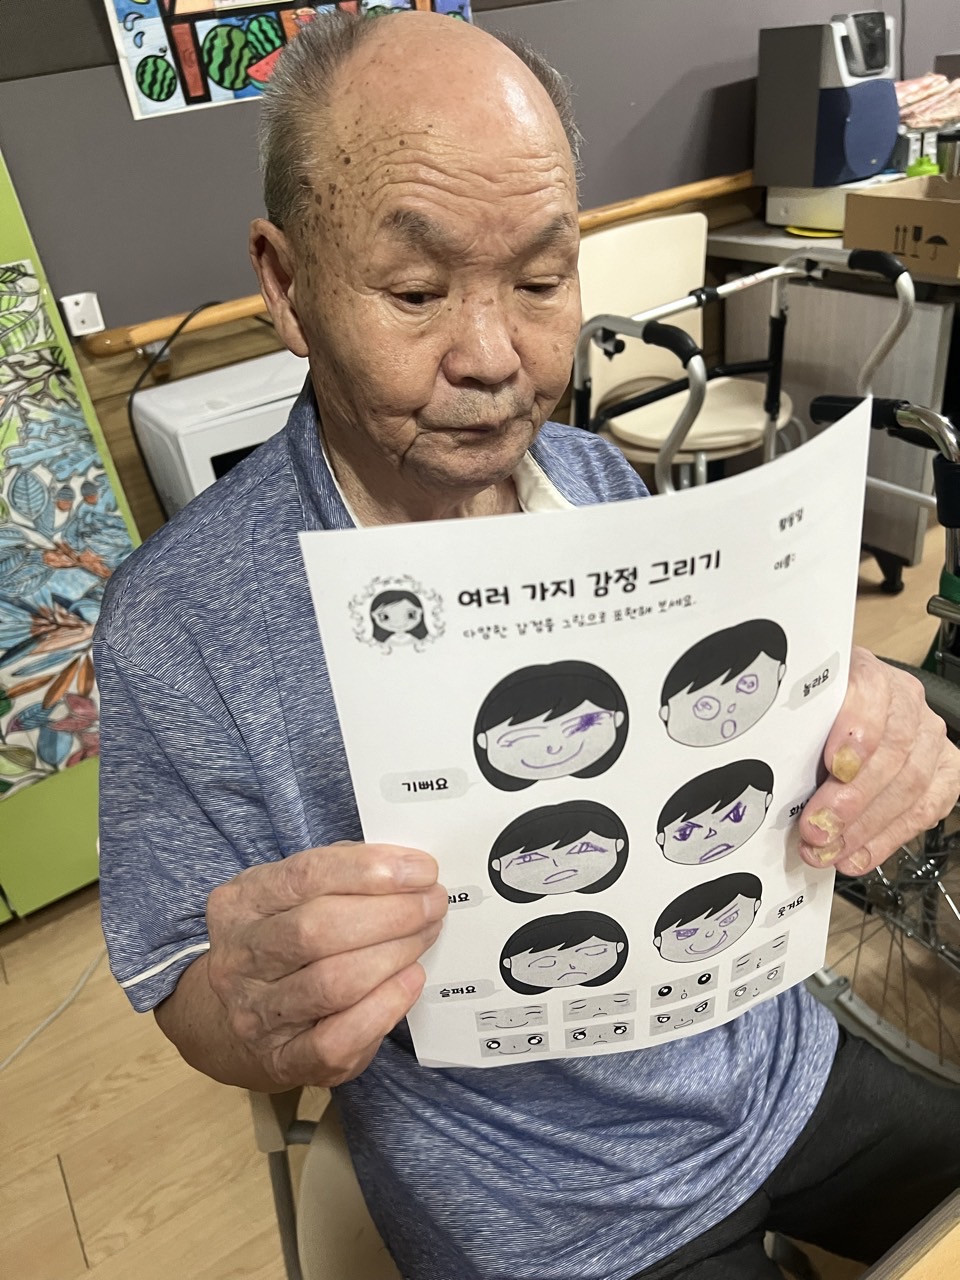 활동일
이름:
여러 가지 감정 그리기
다양한 감정을 그림으로 표현해 보세요.
기뻐요
놀라요
워요
화
슬퍼요
웃겨요